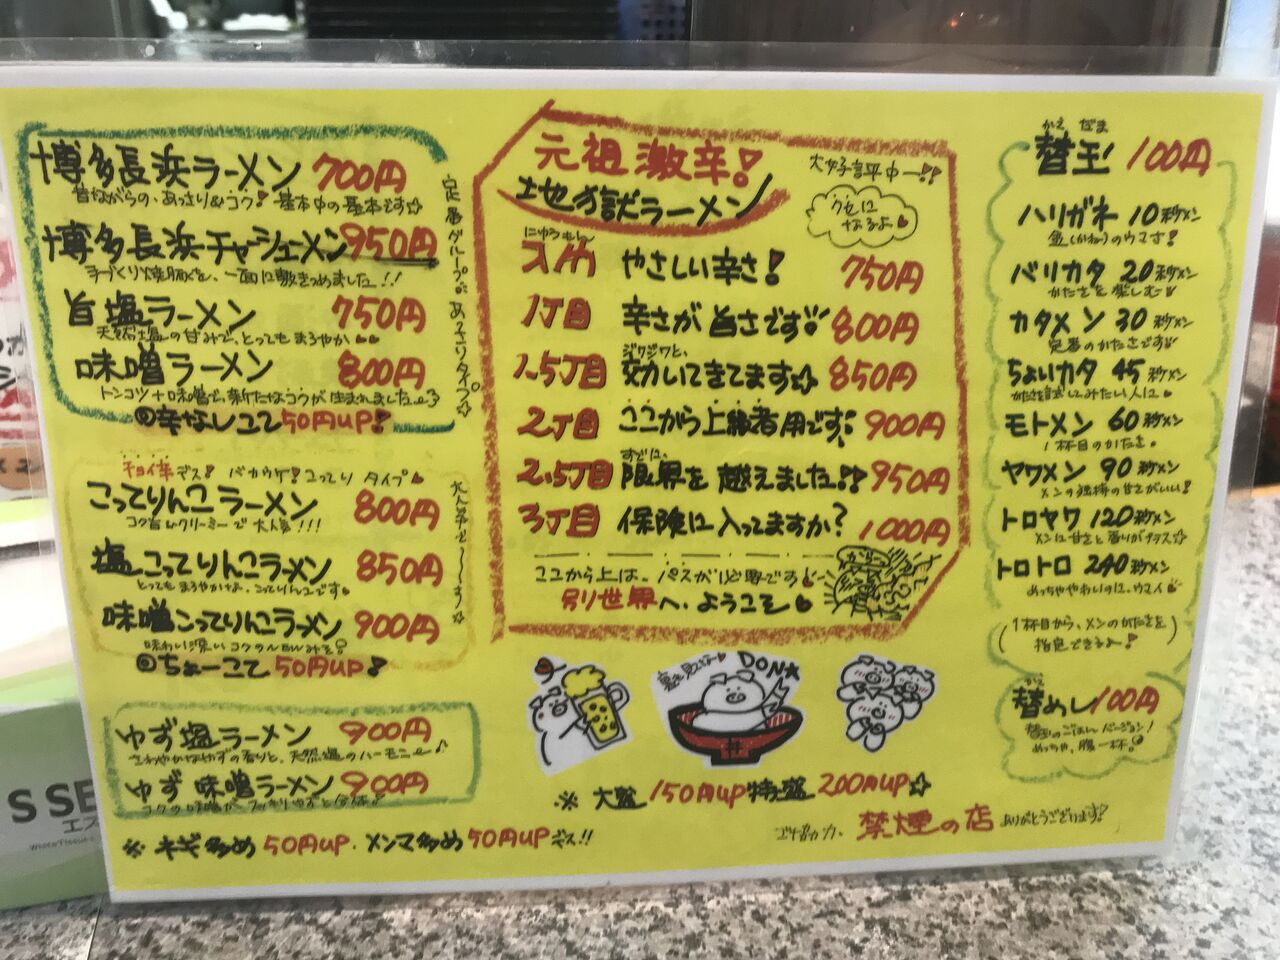 博多長浜ラーメン 700円
昔ながらの、あっさり&コク! 基本中の基本です☆
博多長浜チャーシューメン 950円
手づくり焼豚を、一面に敷きつめました!!
旨塩ラーメン 750円
天然塩の甘みで、とってもまろやか♥♥
味噌ラーメン 800円
トンコツ+味噌で、新たなコクが生まれました
辛なしコて 50円UP!
定番グループ。あっさりタイプ☆
デス! バカウケ! こってり タイプ♥
こってりんこラーメン 800円
コク旨いクリーミーで 大人気!!!
塩こってりんこラーメン 850円
とってもまろやかな、こってりんこです
味噌こってりんこラーメン 900円
味わい深いコクの
ちょーこて 50円UP!
ゆず塩ラーメン 900円
さわやかなゆずの香りと、天然塩のハーモニー♪
ゆず味噌ラーメン 900円
コクの味噌が、スッキリゆずと合体♪
※ ネギ多め 50円UP. メンマ多め 50円UP デス!!
元祖激辛!
地獄ラーメン
大好評中ー!!
クセに
なるよ♥
にゅうもん
入門 やさしい辛さ! 750円
1丁目 辛さが旨さです 800円
ジワジワと、
1.5丁目 効いてきてます☆ 850円
2丁目 ここから上級者用です! 900円
すでに、
2.5丁目 限界を越えました!! 950円
3丁目 保険に入ってますか? 1000円
ここから上は、パスが必要です
別世界へ、ようこそ♥
から〜
裏も見てね♥
DON☆
丼
※ 大盛 150円UP 特盛 200円UP☆
かえ だま
替玉 100円
ハリガネ 10秒メン
金(かね)のウマさ!
バリカタ 20秒メン
かたさを楽しむ
カタメン 30秒メン
定番のかたさです
ちょいカタ 45秒メン
かたさを試してみたい人に
モトメン 60秒メン
1杯目のかたさ。
ヤワメン 90秒メン
メンの独特の甘さがいい!
トロヤワ 120秒メン
メンに甘さと香りがプラス☆
トロトロ 240秒メン
めっちゃやわいのに、ウマイ
(1杯目から、メンのかたさを
指定できるよ!)
かえ
替めし 100円
替玉のごはんバージョン!
めっちゃ、腹一杯。
ご協力、禁煙の店 ありがとうございます!
S SE
エス